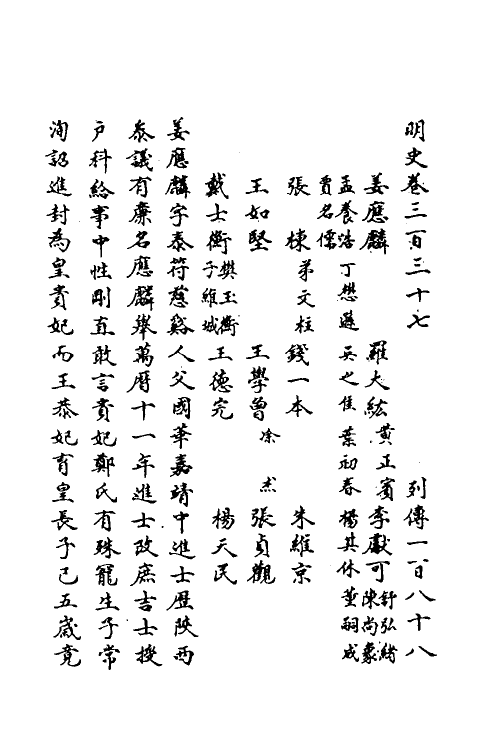 明史卷三百三十七 列傳一百八十八
姜應麟 羅大紘 黃正賓 李獻可 舒弘緒 陳尚象
孟養浩 丁懋遜 吳之佳 葉初春 楊其休 董嗣成
賈名儒
張棟 弟文柱 錢一本 朱維京
王如堅 王學曾 涂杰 張貞觀
戴士衡 樊玉衡 子維城 王德完 楊天民
姜應麟字泰符慈谿人父國華嘉靖中進士歷陝西
叅議有廉名應麟舉萬曆十一年進士改庶吉士授
戶科給事中性剛直敢言貴妃鄭氏有殊寵生子常
洵詔進封為皇貴妃而王恭妃育皇長子已五歲竟